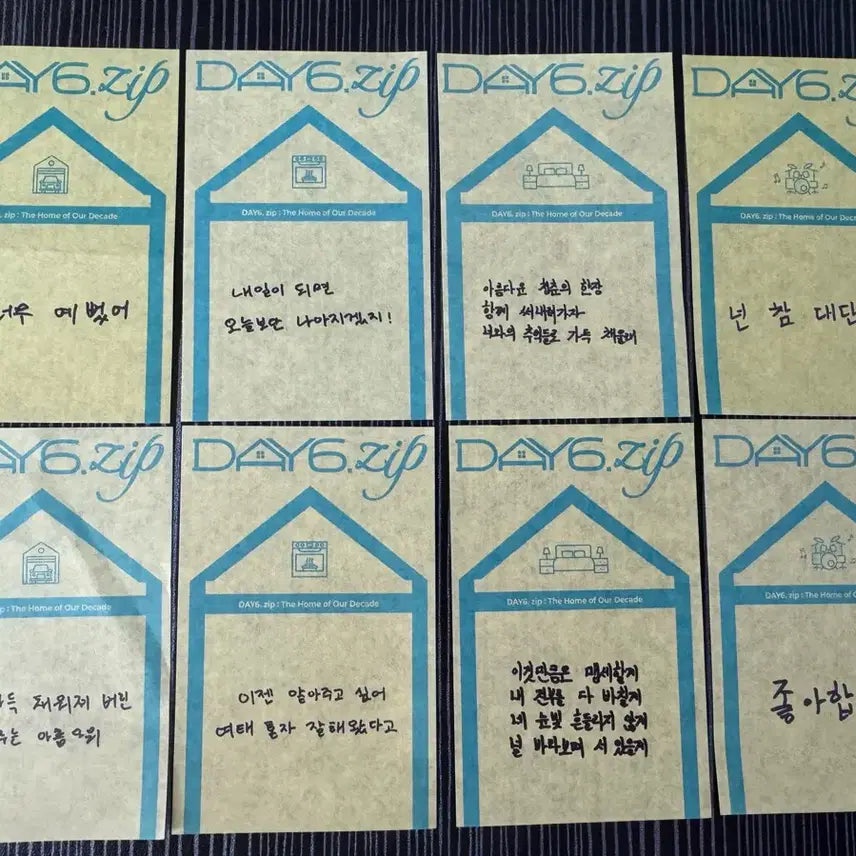 DAY6.zip
DAY6.zip : The Home of Our Decade
너무 예뻤어
DAY6.zip
DAY6. zip : The Home of Our Decade
내일이 되면
오늘보단 나아지겠지!
DAY6.zip
DAY6. zip : The Home of Our Decade
아름다운 청춘의 한장
함께 써내려가자
너와의 추억들로 가득 채울래
DAY6.z
DAY6. zip : The Home of Our Decade
넌 참 대단
AY6.zip
zip : The Home of Our Decade
득 채워져 버린
아픔 위
DAY6.zip
DAY6. zip : The Home of Our Decade
이젠 알아주고 싶어
여태 혼자 잘해왔다고
DAY6.zip
DAY6. zip : The Home of Our Decade
이것만큼은 맹세할게
내 전부를 다 바칠게
네 눈빛 흔들리지 않게
널 바라보며 서 있을게
DAY6
DAY6. zip : The Home of Our
좋아합